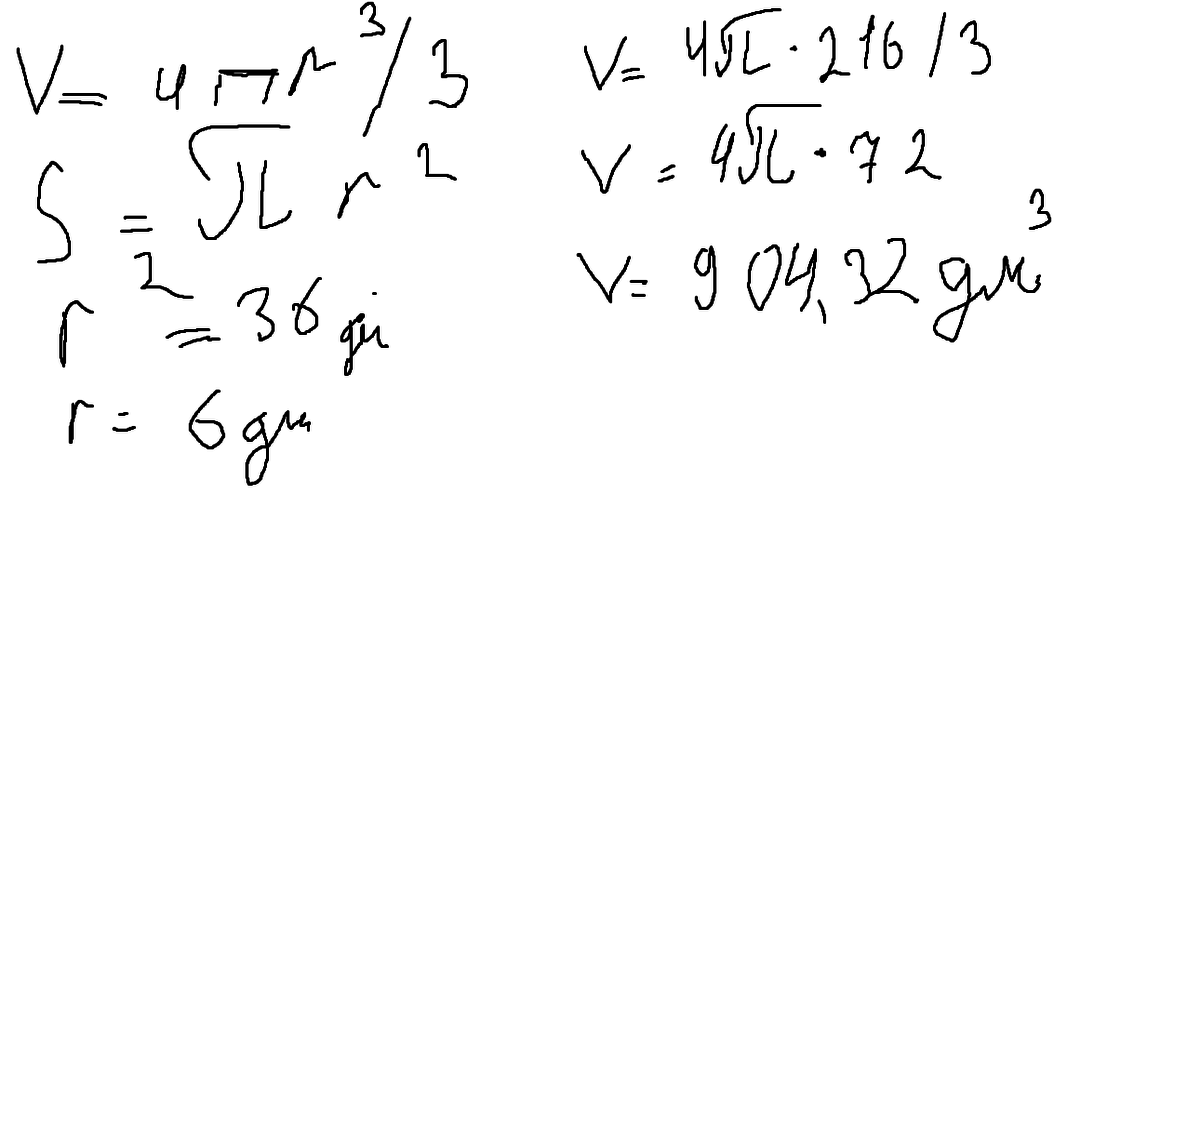 V= 4πr³/3
S = π r²
r² = 36 дм
r = 6 дм
V= 4π · 216 / 3
V = 4π · 72
V= 904,32 дм³